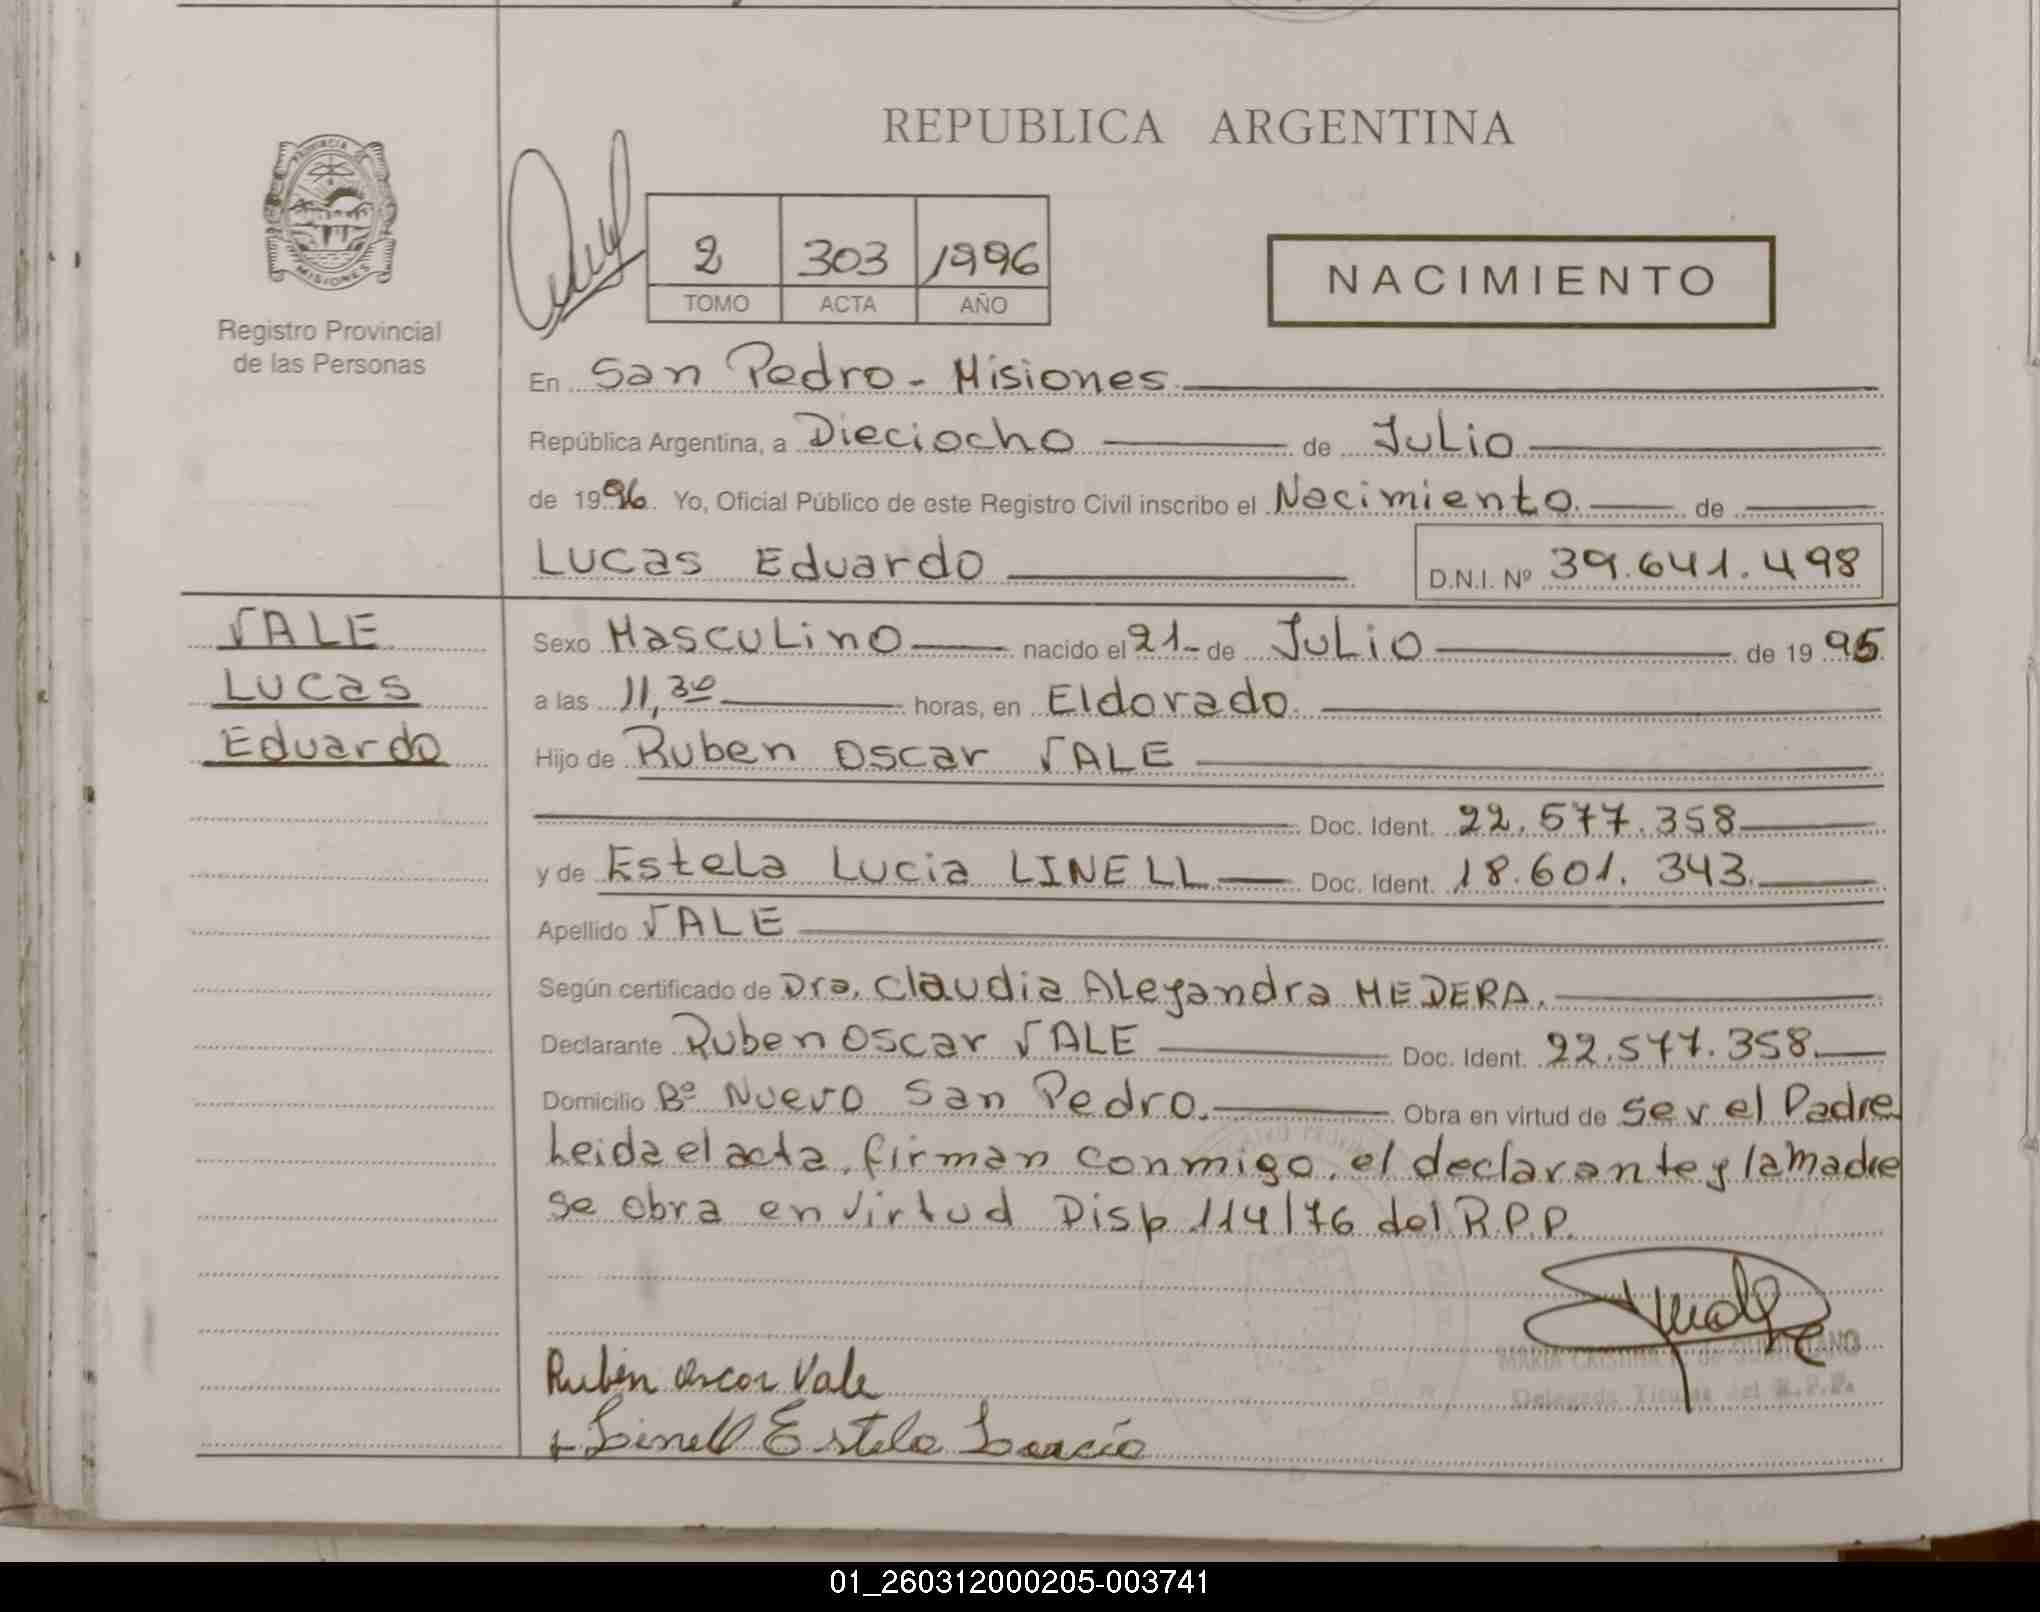 REPUBLICA ARGENTINA
PROVINCIA DE
MISIONES
Registro Provincial
de las Personas
2 303 1996
TOMO ACTA AÑO
NACIMIENTO
En San Pedro - Misiones
República Argentina, a Dieciocho de Julio
de 1996. Yo, Oficial Público de este Registro Civil inscribo el Nacimiento de
Lucas Eduardo D.N.I. Nº 39.641.498
VALE
Lucas
Eduardo
Sexo Masculino nacido el 21- de Julio de 1995
a las 11,30 horas, en Eldorado
Hijo de Ruben Oscar VALE
Doc. Ident. 22.577.358
y de Estela Lucia LINELL Doc. Ident. 18.601.343.
Apellido VALE
Según certificado de Dra. Claudia Aleyandra MEDERA.
Declarante Ruben Oscar VALE Doc. Ident. 22.577.358.
Domicilio Bº Nuevo San Pedro. Obra en virtud de ser el Padre
Leida el acta, firman conmigo, el declarante y la Madre
se obra en virtud Disp 114/76 del R.P.P.
Rubén Oscar Vale
Linell Estela Lucía
MARIA CRISTINA
Delegada Titular del R.P.P.
01_260312000205-003741